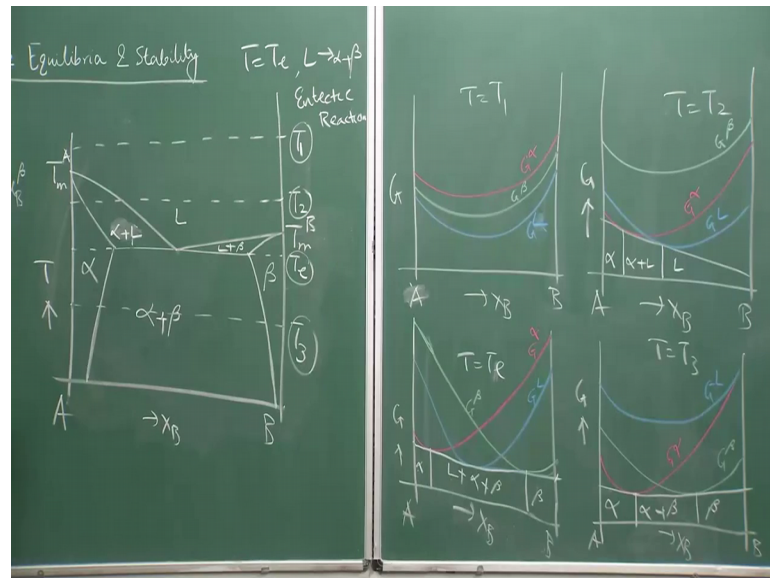 : Equilibria & Stability
T=Te, L→α+β
Eutectic
Reaction
T₁
Tₘᴬ
T₂
L
Tₘᴮ
α+L
L+β
Te
T
α
β
α+β
T₃
A
→X_B
B
X_B^β
T=T₁
G
G^α
G^β
G^L
A
→X_B
B
T=T₂
G^β
G
G^α
G^L
α
α+L
L
A
→X_B
B
T=Te
G^α
G^L
G^β
G
α
L+α+β
β
A
→X_B
B
T=T₃
G^L
G
G^α
G^β
α
α+β
β
A
→X_B
B